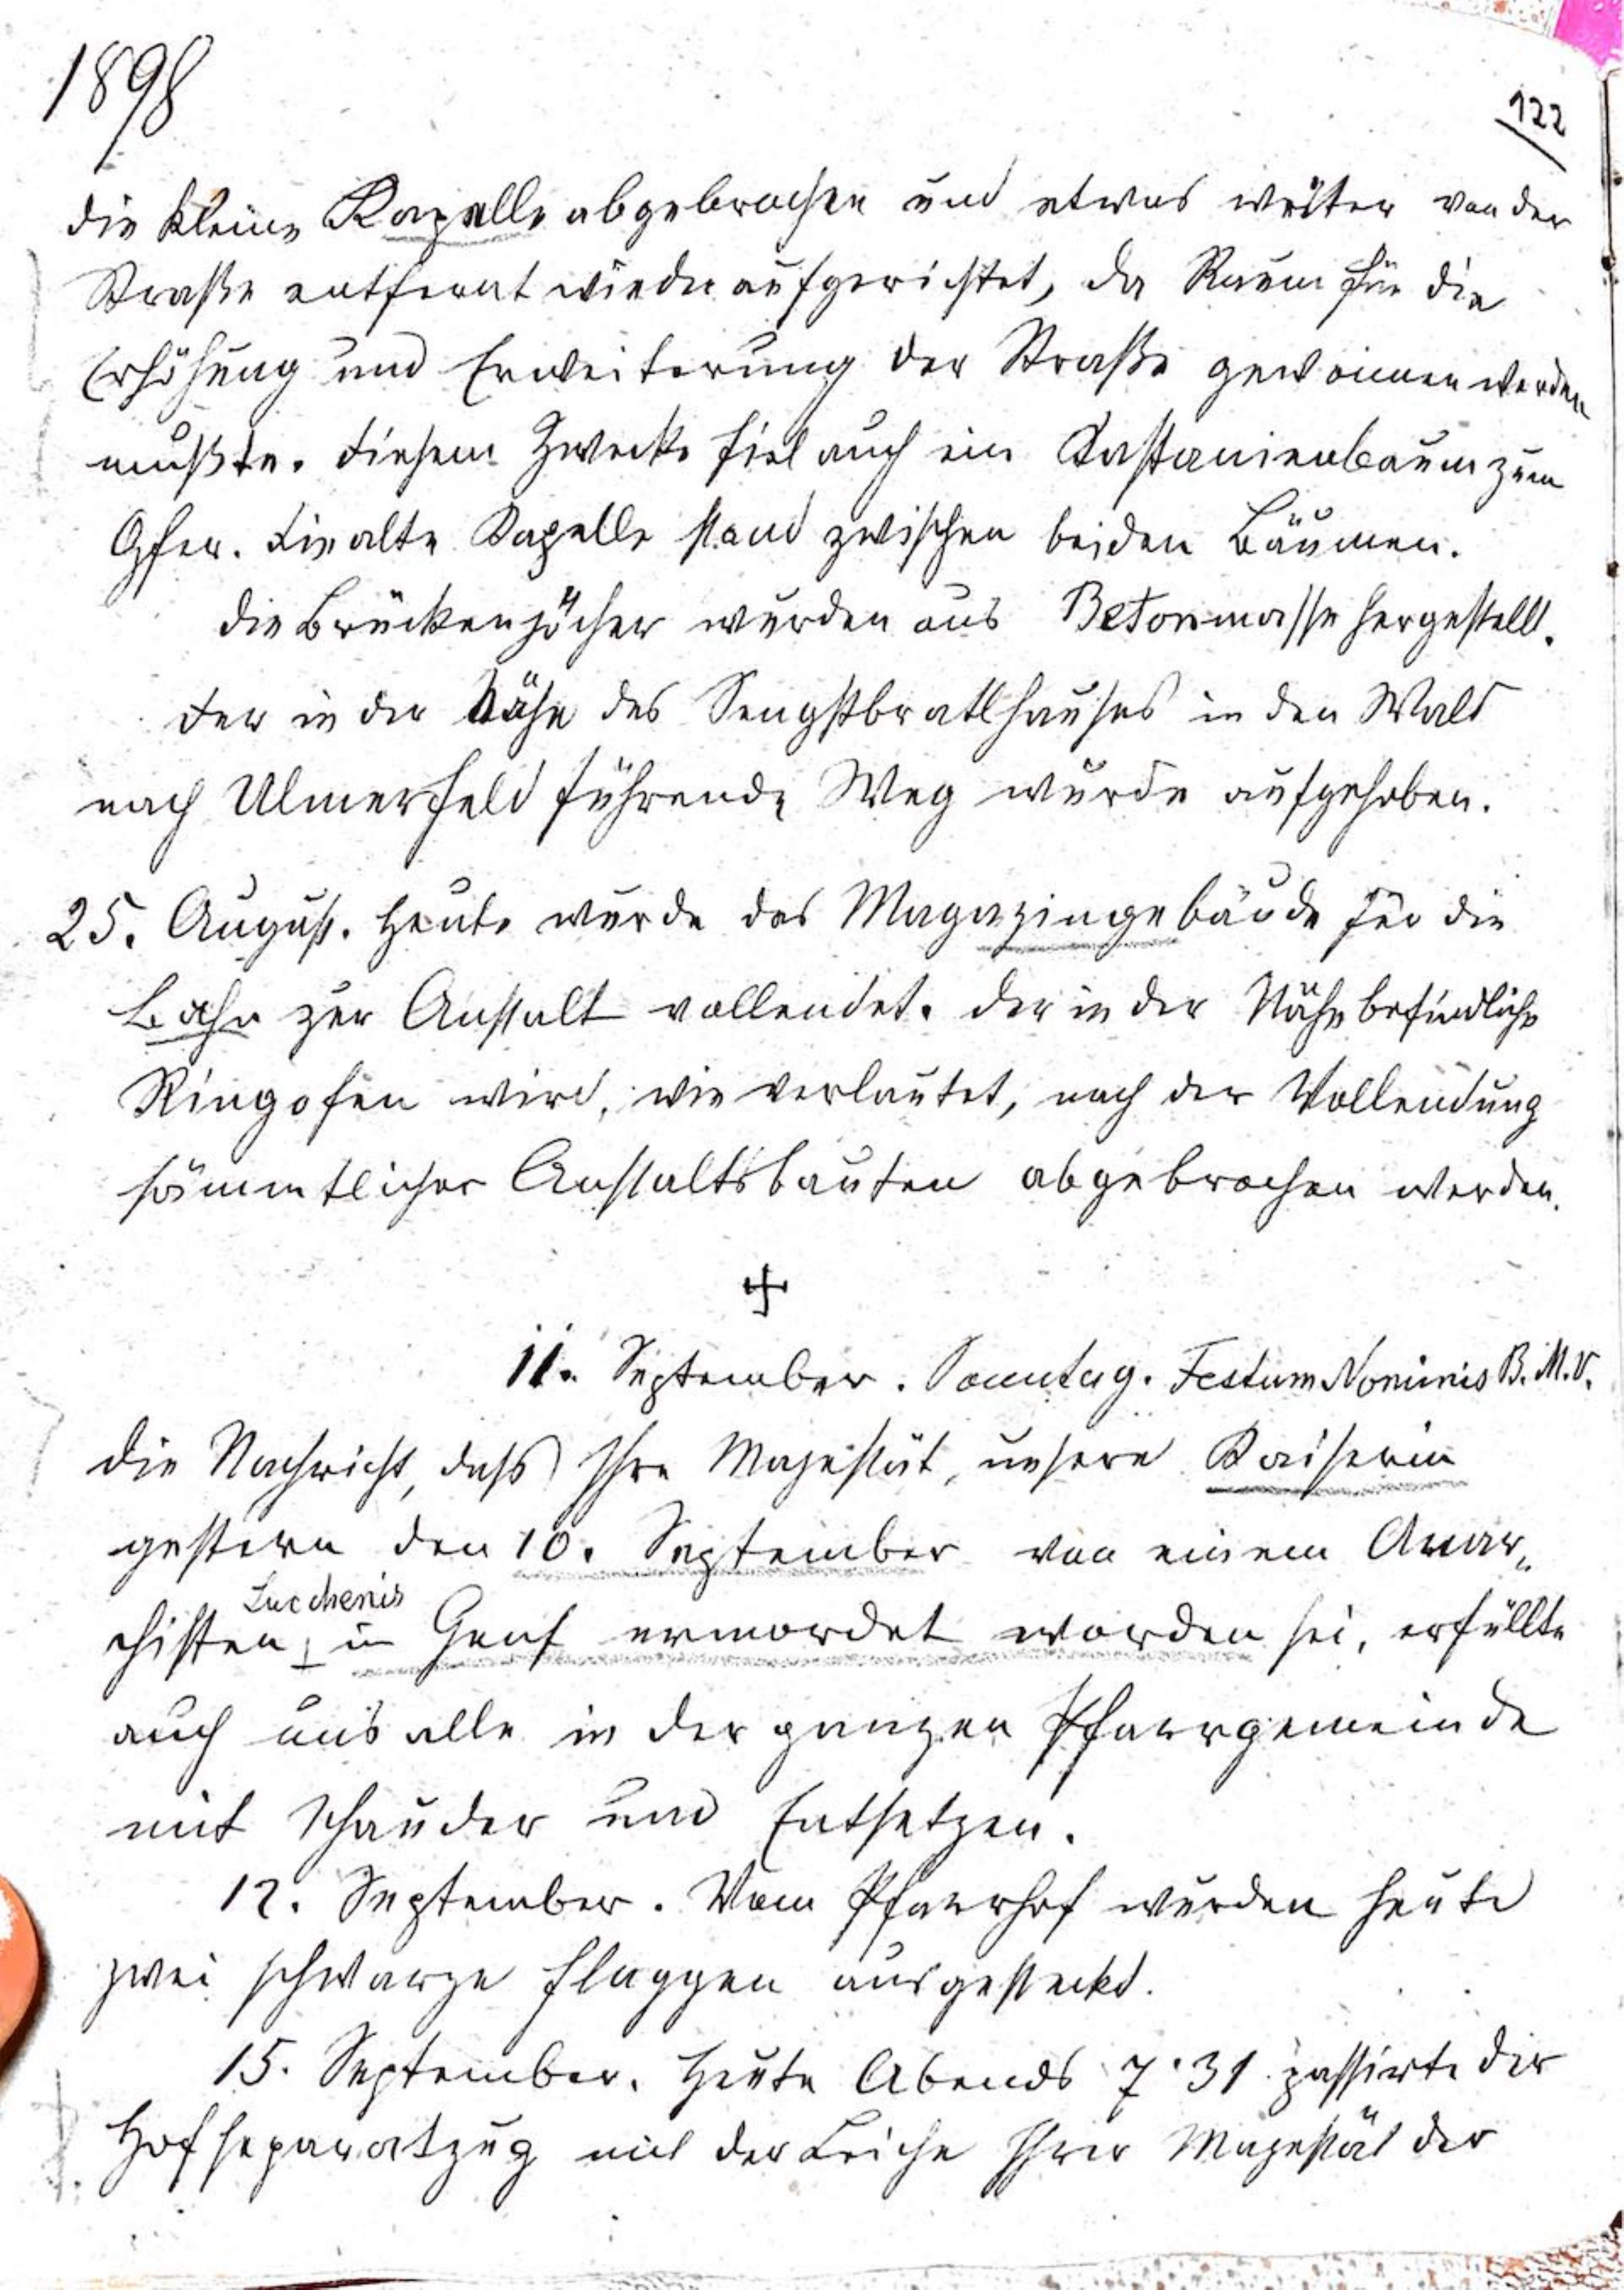 1898
122
die kleine Kapelle abgebrochen und etwas weiter von der
Straße entfernt wieder aufgerichtet, da Raum für die
Erhöhung und Erweiterung der Straße gewonnen werden
mußte. Diesem Zwecke fiel auch ein Kastanienbaum zum
Opfer. Die alte Kapelle stand zwischen beiden Bäumen.
Die Brückenjöcher wurden aus Betonmasse hergestellt.
Der in der Nähe des Sengstbratlhauses in den Wald
nach Ulmerfeld führende Weg wurde aufgehoben.
25. August. Heute wurde das Magazingebäude für die
Bahn zur Anstalt vollendet. Der in der Nähe befindliche
Ringofen wird, wie verlautet, nach der Vollendung
sämmtlicher Anstaltsbauten abgebrochen werden.
11. September. Sonntag. Festum Nominis B. M. V.
Die Nachricht, dass Ihre Majestät, unsere Kaiserin
gestern den 10. September von einem Anar„
Lucchenis
chisten in Genf ermordet worden sei, erfüllte
auch uns alle in der ganzen Pfarrgemeinde
mit Schauder und Entsetzen.
12. September. Vom Pfarrhof wurden heute
zwei schwarze Flaggen ausgesteckt.
15. September. Heute Abends 7·31 passirte der
Hofseparatzug mit der Leiche Ihrer Majestät der